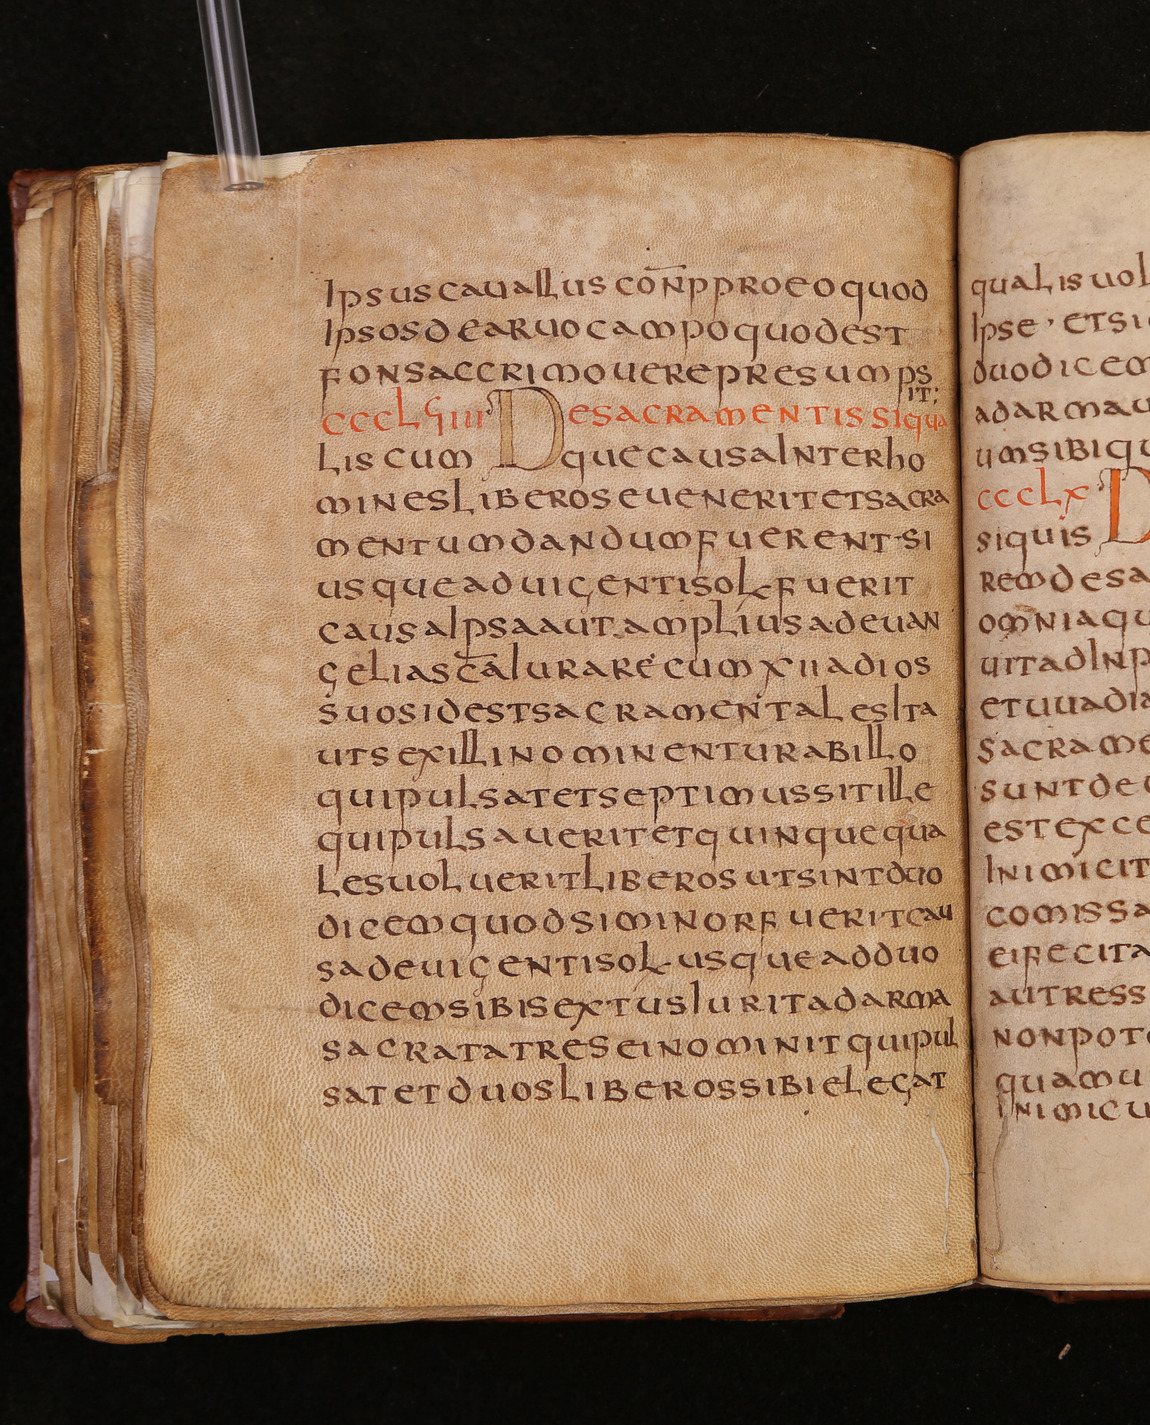 ipsus cauallus con̄p pro eo quod
ipsos de aruo campo quod est
fons accri mouere presumps
it;
ccclviiii De sacramentis si qua
lis cum que causa inter ho
mines liberos euenerit et sacra
mentum dandum fuerent si
usque ad uigenti sol fuerit
causa ipsa aut amplius ad euan
gelia sc̄a iurare cum xii adios
suos id est sacramentales ita
ut sex illi nominentur ab illo
qui pulsat et septimus sit ille
qui pulsauerit et quinque qua
les uoluerit liberos ut sint duo
dicem quod si minor fuerit cau
sa de uigenti sol usque ad duo
dicem sibi sextus iurit ad arma
sacrata tres ei nominit qui pul
sat et duos liberos sibi elegat
qualis uol
ipse , et si
duodicem
ad arma
um sibi qu
ccclx D
si quis
rem de sa
omnia qu
uit ad inp
et uuadia
sacrame
sunt de
est exce
inimicit
comissa
ei fecit a
aut tress
non pot
quam u
inimicu